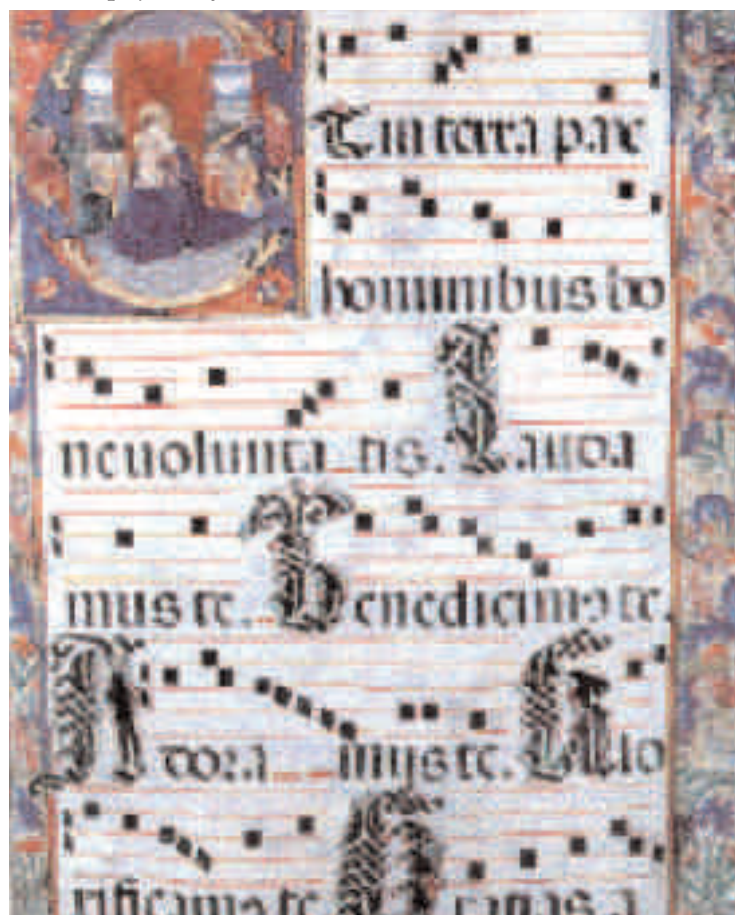 Et in terra pax
hominibus bo
ne uolunta tis. Lauda
mus te. Benedicimꝰ te.
Adora mus te. Glo
rificamꝰ te. Gratias a